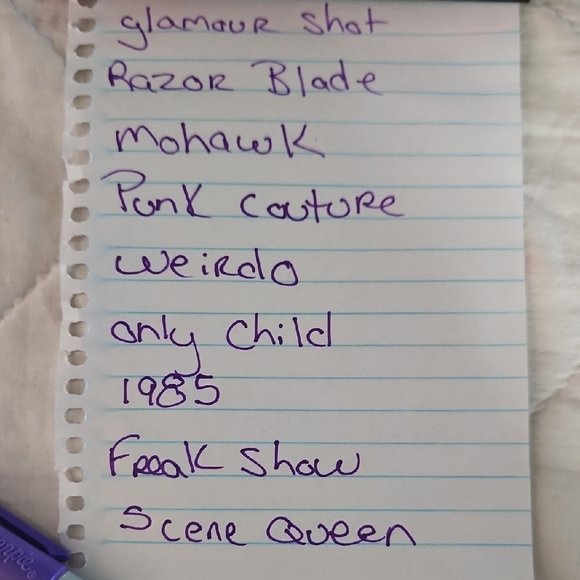 glamouR Shot
RazoR Blade
mohawK
PunK CoutuRe
weiRdo
only Child
1985
FReaK Show
Scene Queen